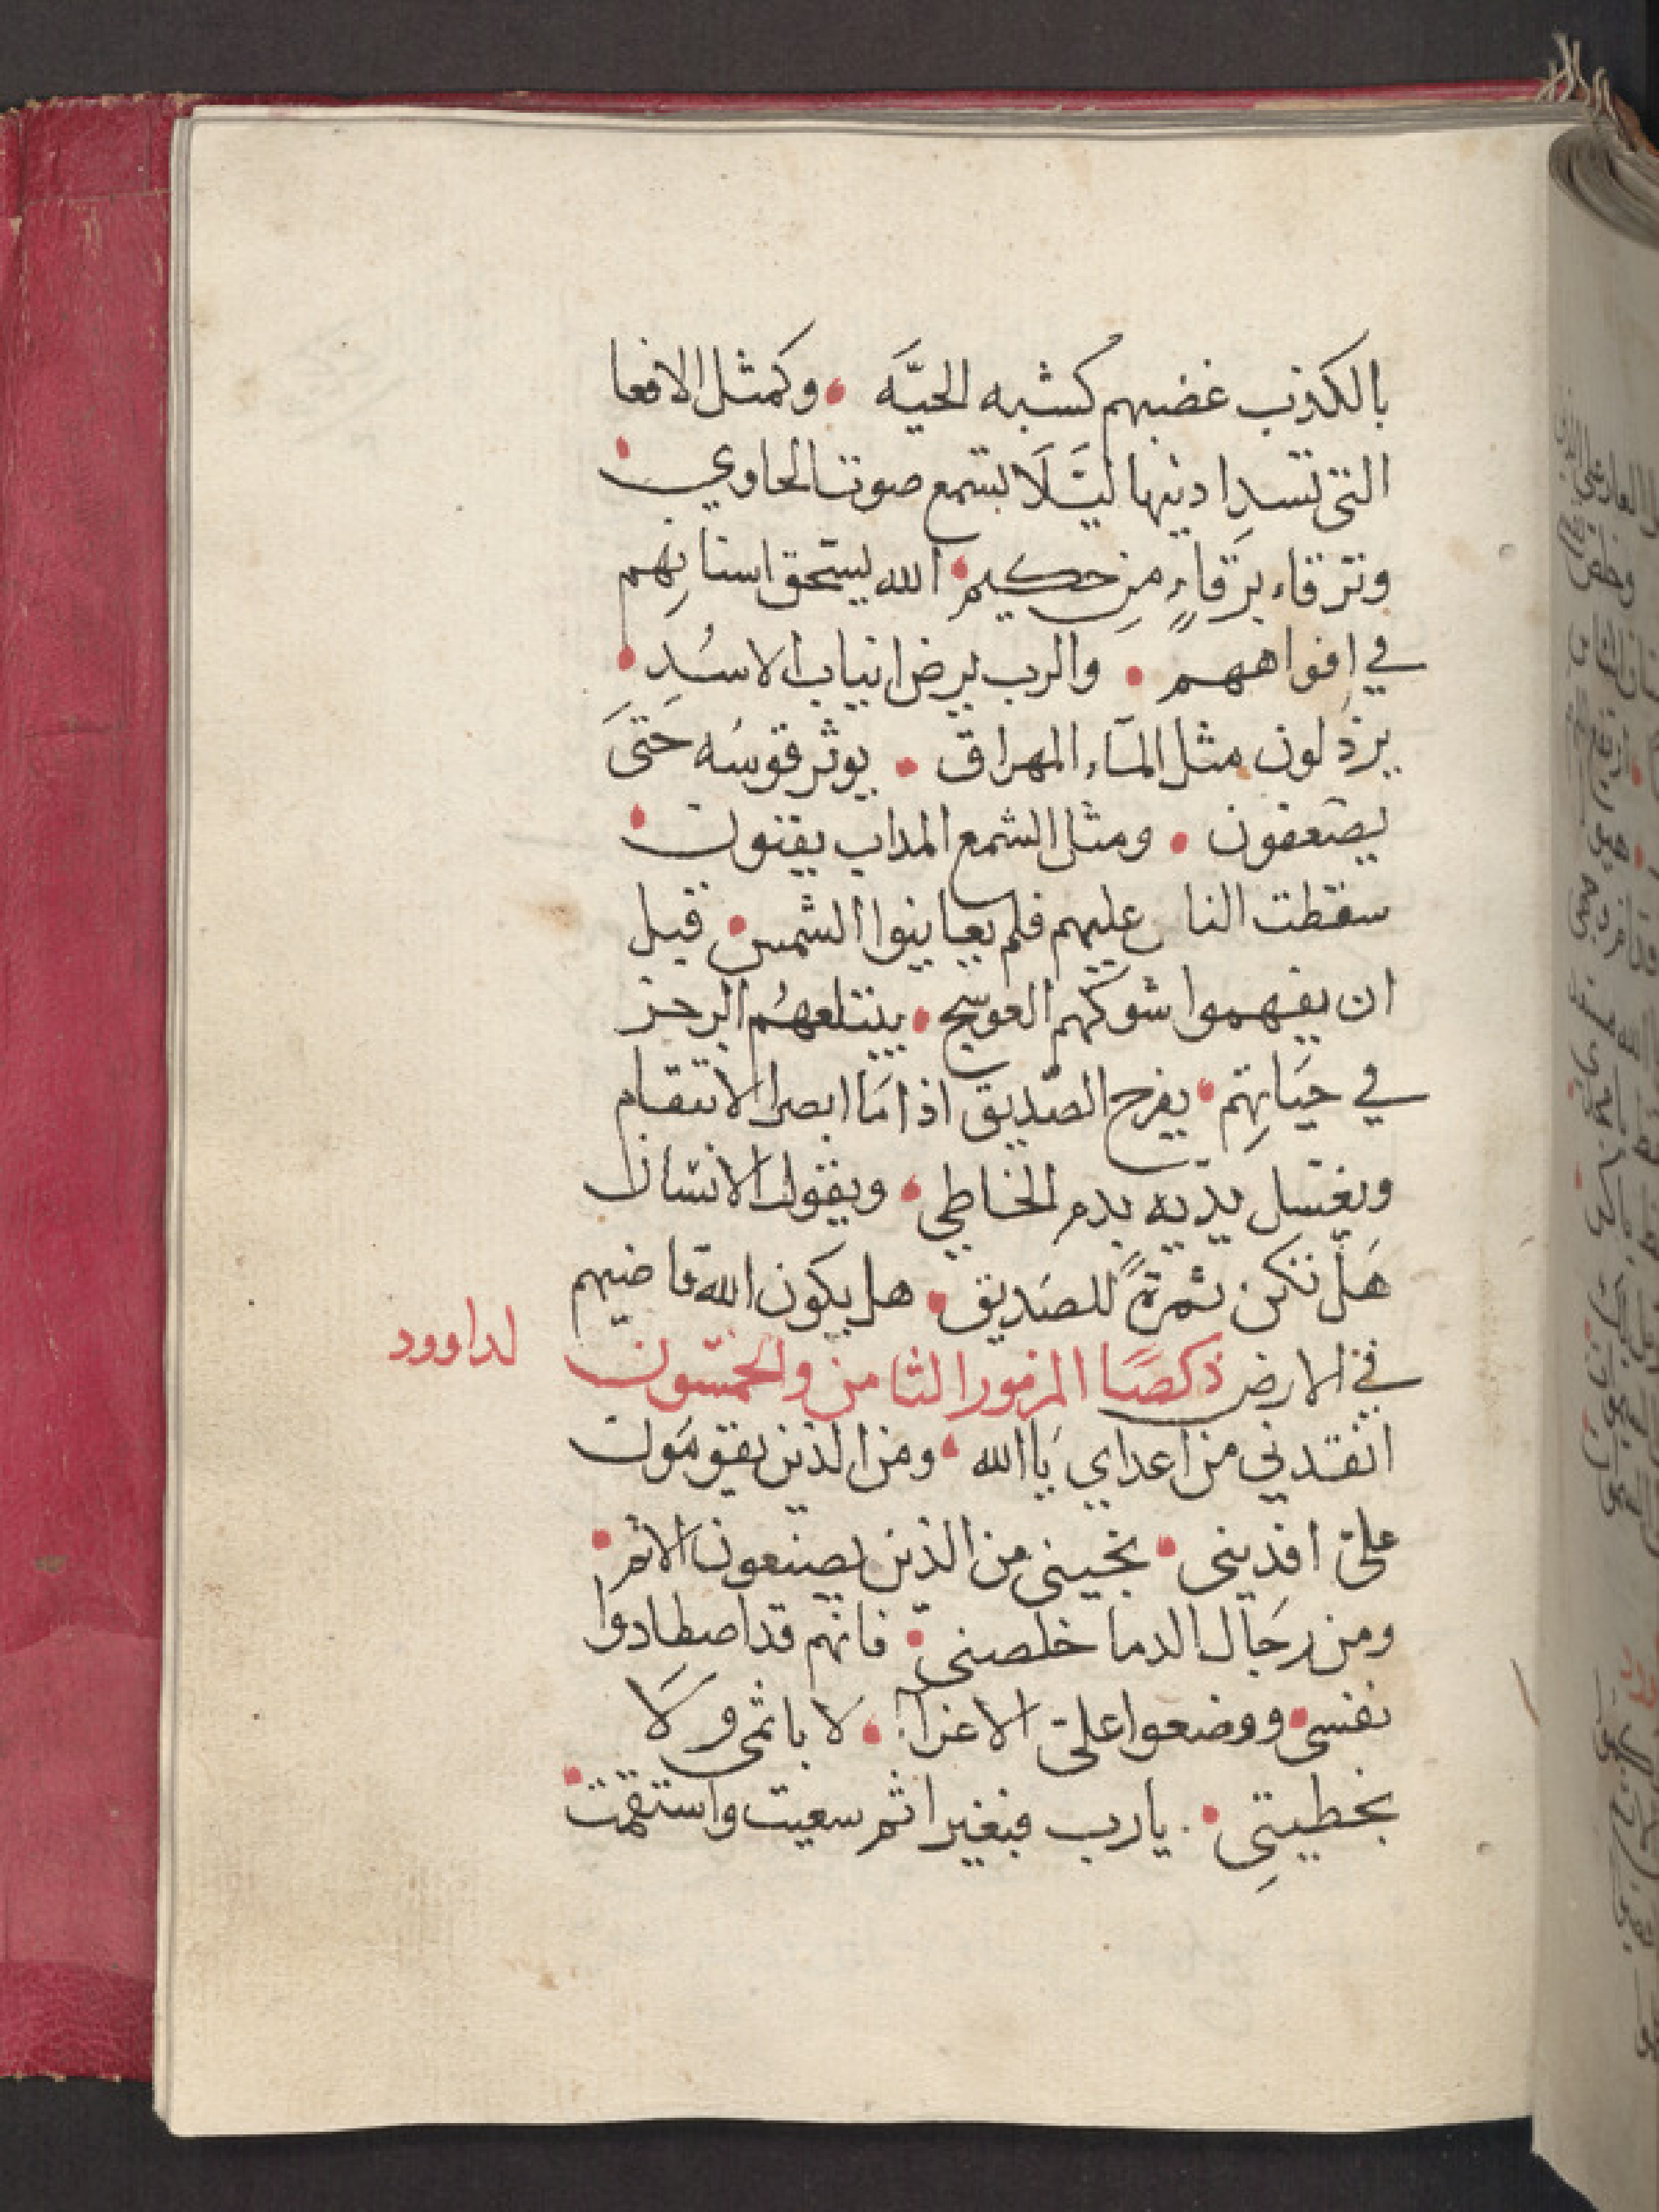 بالكذب غضبهم كشبه الحيَّه • وكمثل الافعا
التى تسد ادنيها ليَّلَا تستمع صوت الحاوي •
وترقاء برَقاءٍ من حكيم • الله يستحق اسنانهم
في افواههم • والرب يرض انياب الاسُدِ •
يرذلون مثل المآء المهراق • يوثر قوسُه حَتىَ
يصعفون • ومثل الشمع المداب يفنون •
سقطت النار عليهم فلم يعاينوا الشمس • قبل
ان يفهموا شوكهم العوسج • يبتلعهُم الرجز
في حيَاتِهم • يفرح الصّديق اذا مَا ابصر الانتقام
ويغسل يديه بدم الخاطي • ويقول الانسان
هَل تكن ثمرةً للصَديق • هل يكون الله قاضيهم
في الارض ذكصَا المزمور الثامن والخمسون لداوود
انقدني من اعداي يَا الله • ومن الذين يقومَون
علىّ افديني • نجيني من الذين يصنعون الاثم •
ومن رجَال الدما خلصني • فانهم قد اصطادوا
نفسي • ووضعوا علىّ الاعزآ • لا باثمي وَلَا
بخطيتىِ • يارب فبغير اثم سعيت واستقمت •